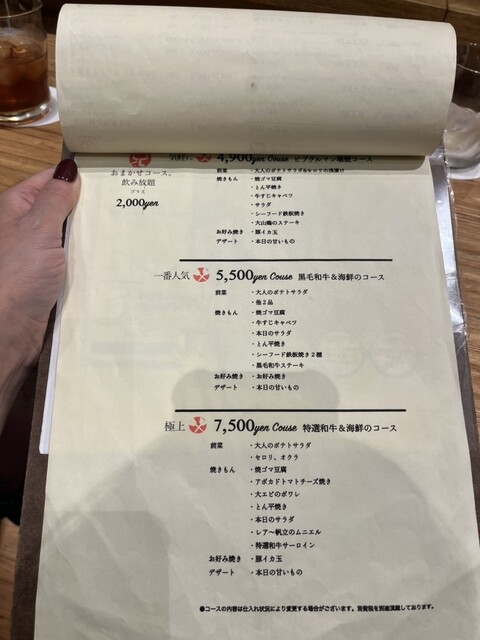 おまかせコース、
飲み放題
プラス
2,000yen
気軽に 4,900yen Couse ビブグルマン堪能コース
前菜 ・大人のポテトサラダ&セロリの浅漬け
焼きもん ・焼ゴマ豆腐
・とん平焼き
・牛すじキャベツ
・サラダ
・シーフード鉄板焼き
・大山鶏のステーキ
お好み焼き ・豚イカ玉
デザート ・本日の甘いもの
一番人気 5,500yen Couse 黒毛和牛&海鮮のコース
前菜 ・大人のポテトサラダ
・他2品
焼きもん ・焼ゴマ豆腐
・牛すじキャベツ
・本日のサラダ
・とん平焼き
・シーフード鉄板焼き2種
・黒毛和牛ステーキ
お好み焼き ・お好み焼き
デザート ・本日の甘いもの
極上 7,500yen Couse 特選和牛&海鮮のコース
前菜 ・大人のポテトサラダ
・セロリ、オクラ
焼きもん ・焼ゴマ豆腐
・アボカドトマトチーズ焼き
・大エビのポワレ
・とん平焼き
・本日のサラダ
・レア〜帆立のムニエル
・特選和牛サーロイン
お好み焼き ・豚イカ玉
デザート ・本日の甘いもの
●コースの内容は仕入れ状況により変更する場合がございます。消費税を別途頂戴しております。